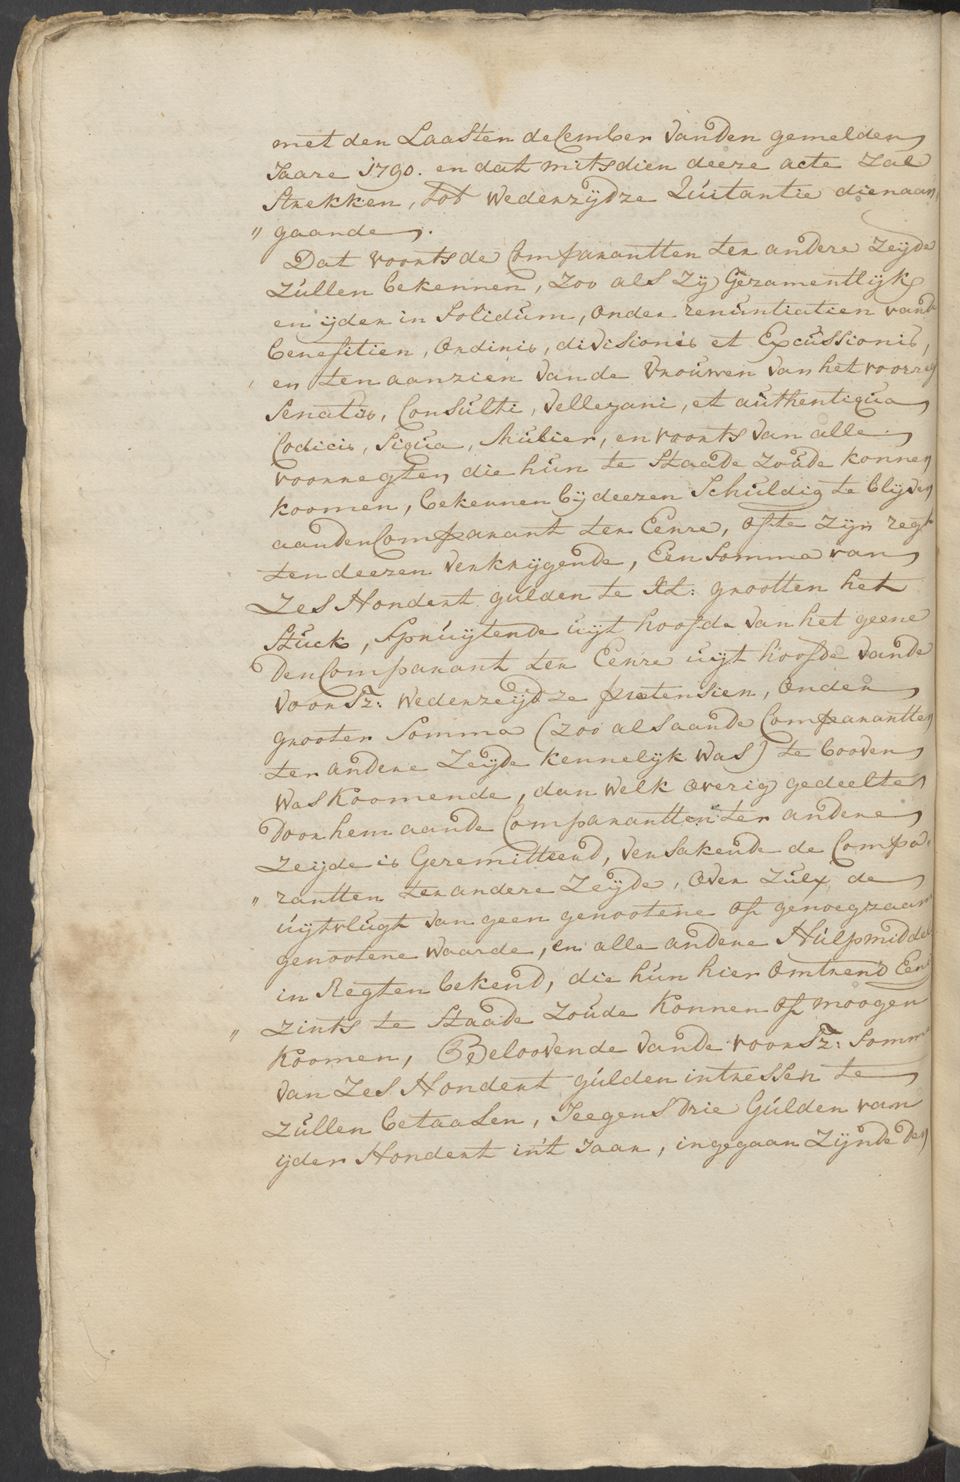 met den Laasten december vanden gemelden
Jaare 1790. en dat mitsdien deeze acte zal
Strekken, tot wederzijdze Quitantie dienaan
" gaande.
Dat voorts de Comparantten ter andere Zeijde
zullen bekennen, zoo als zij Gezamentlijk
en ijder in Solidum, onder renuntiatien vande
benefitien, ordinis, divisionis et Excussionis,
en ten aanzien vande vrouwen van het voorreg
Senatus, Consulti, vellezani, et authentiqua
Codicis, Siqua, Mulier, en voorts van alle
voorregten die hun te Staade zoude konnen
koomen, bekennen bij deezen Schuldig te blijven
aanden Comparant ter Eenre, ofte zijn regt
ten deezen verkrijgende, Een Somma van
Zes Hondert gulden te XL: grootten het
Stuck, Spruijtende uijt hoofde van het geene
Den Comparant ter Eenre uijt hoofde vande
voorSz: wederzeijdze pretensien, onder
grooter Somma (zoo als aande Comparantten
ter andere Zeijde kennelijk was) te booven
was koomende, dan welk overig gedeelte
door hem aande Comparantten ter andere
Zeijde is Geremitteerd, versakende de Compa
" rantten ter andere Zeijde, over zulx de
uijtvlugt van geen genootene of genoegzaam
genootene waarde, en alle andere Hulpmiddel
in Regten bekend, die hun hier omtrend Een
" zints te Staade zoude konnen of moogen
koomen, Beloovende vande voorSz: Somma
van Zes Hondert gulden intressen te
zullen betaalen, Jeegens drie Gulden van
ijder Hondert in't Jaar, ingegaan zijnde den